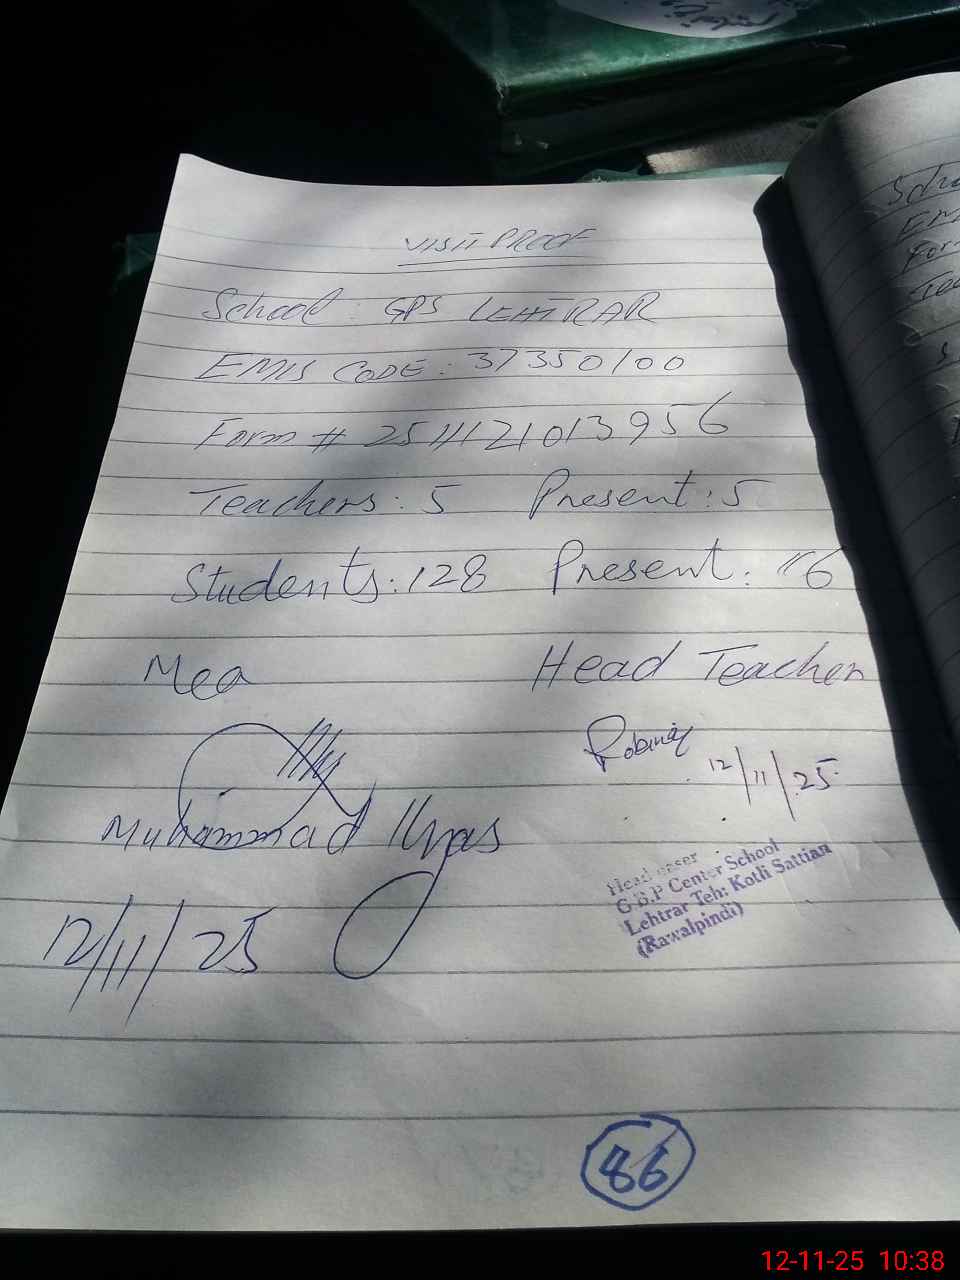 VISIT PROOF
School : GPS LEHTRAR
EMIS CODE : 37350100
Form # 254121013956
Teachers : 5 Present : 5
Students : 128 Present : 116
Mea Head Teacher
Robina
12/11/25
Muhammad Ilyas
12/11/25
Head
Center School
Lehtrar Teh: Kotli Sattian
(Rawalpindi)
86
12-11-25 10:38